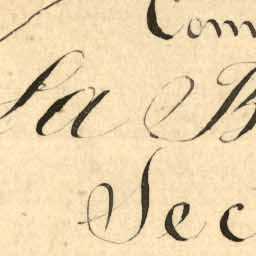 Com
la B
Sec